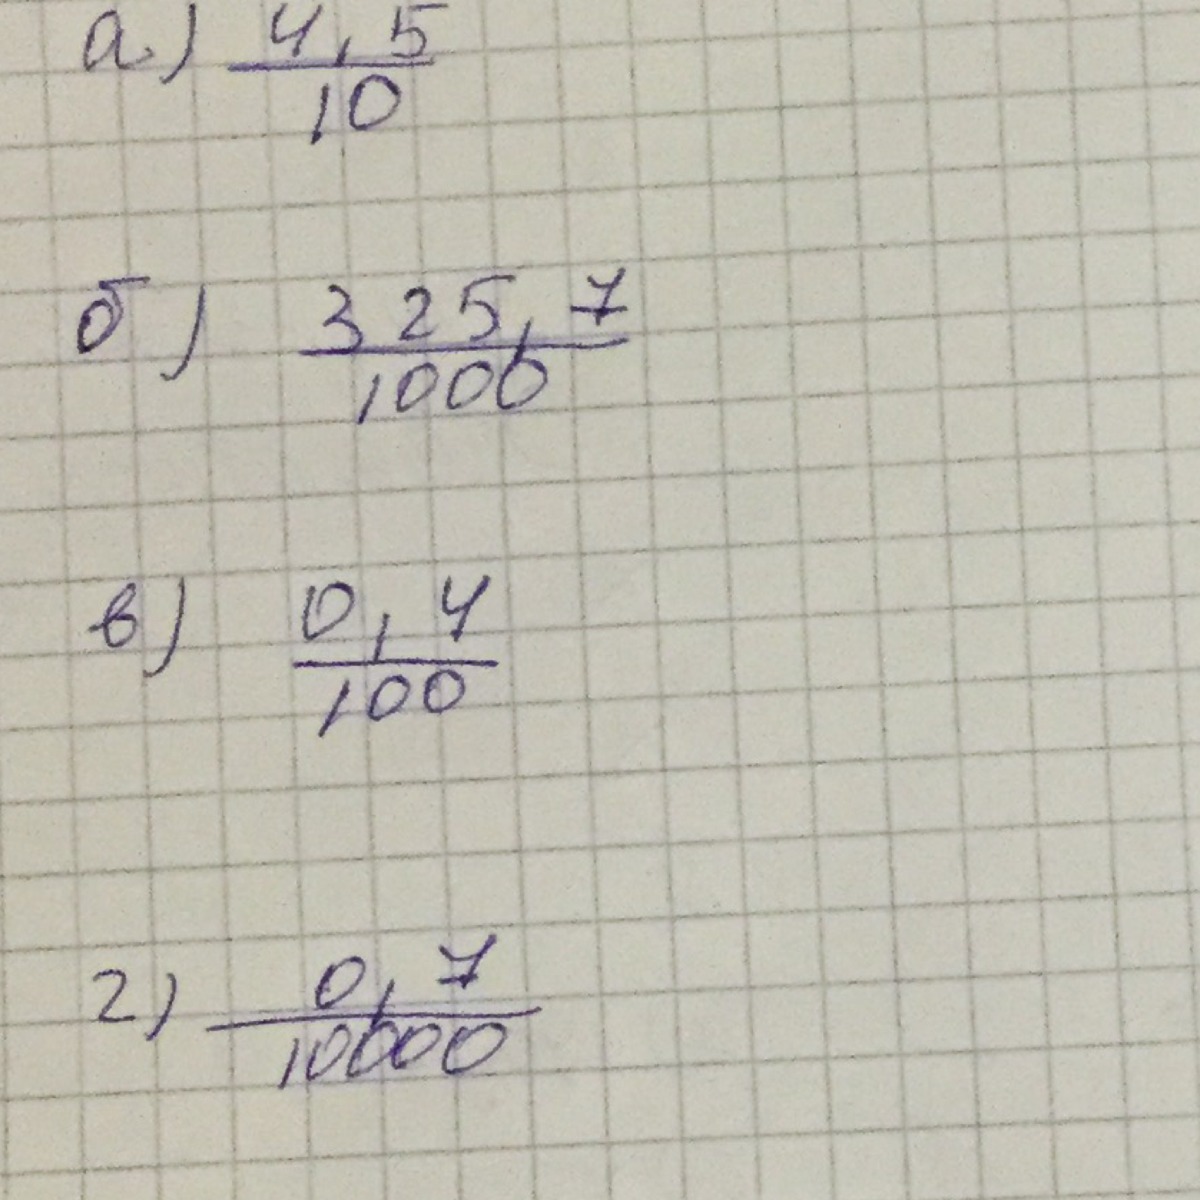 а) 4,5
10
б) 325,7
1000
в) 0,4
100
г) 0,7
10000